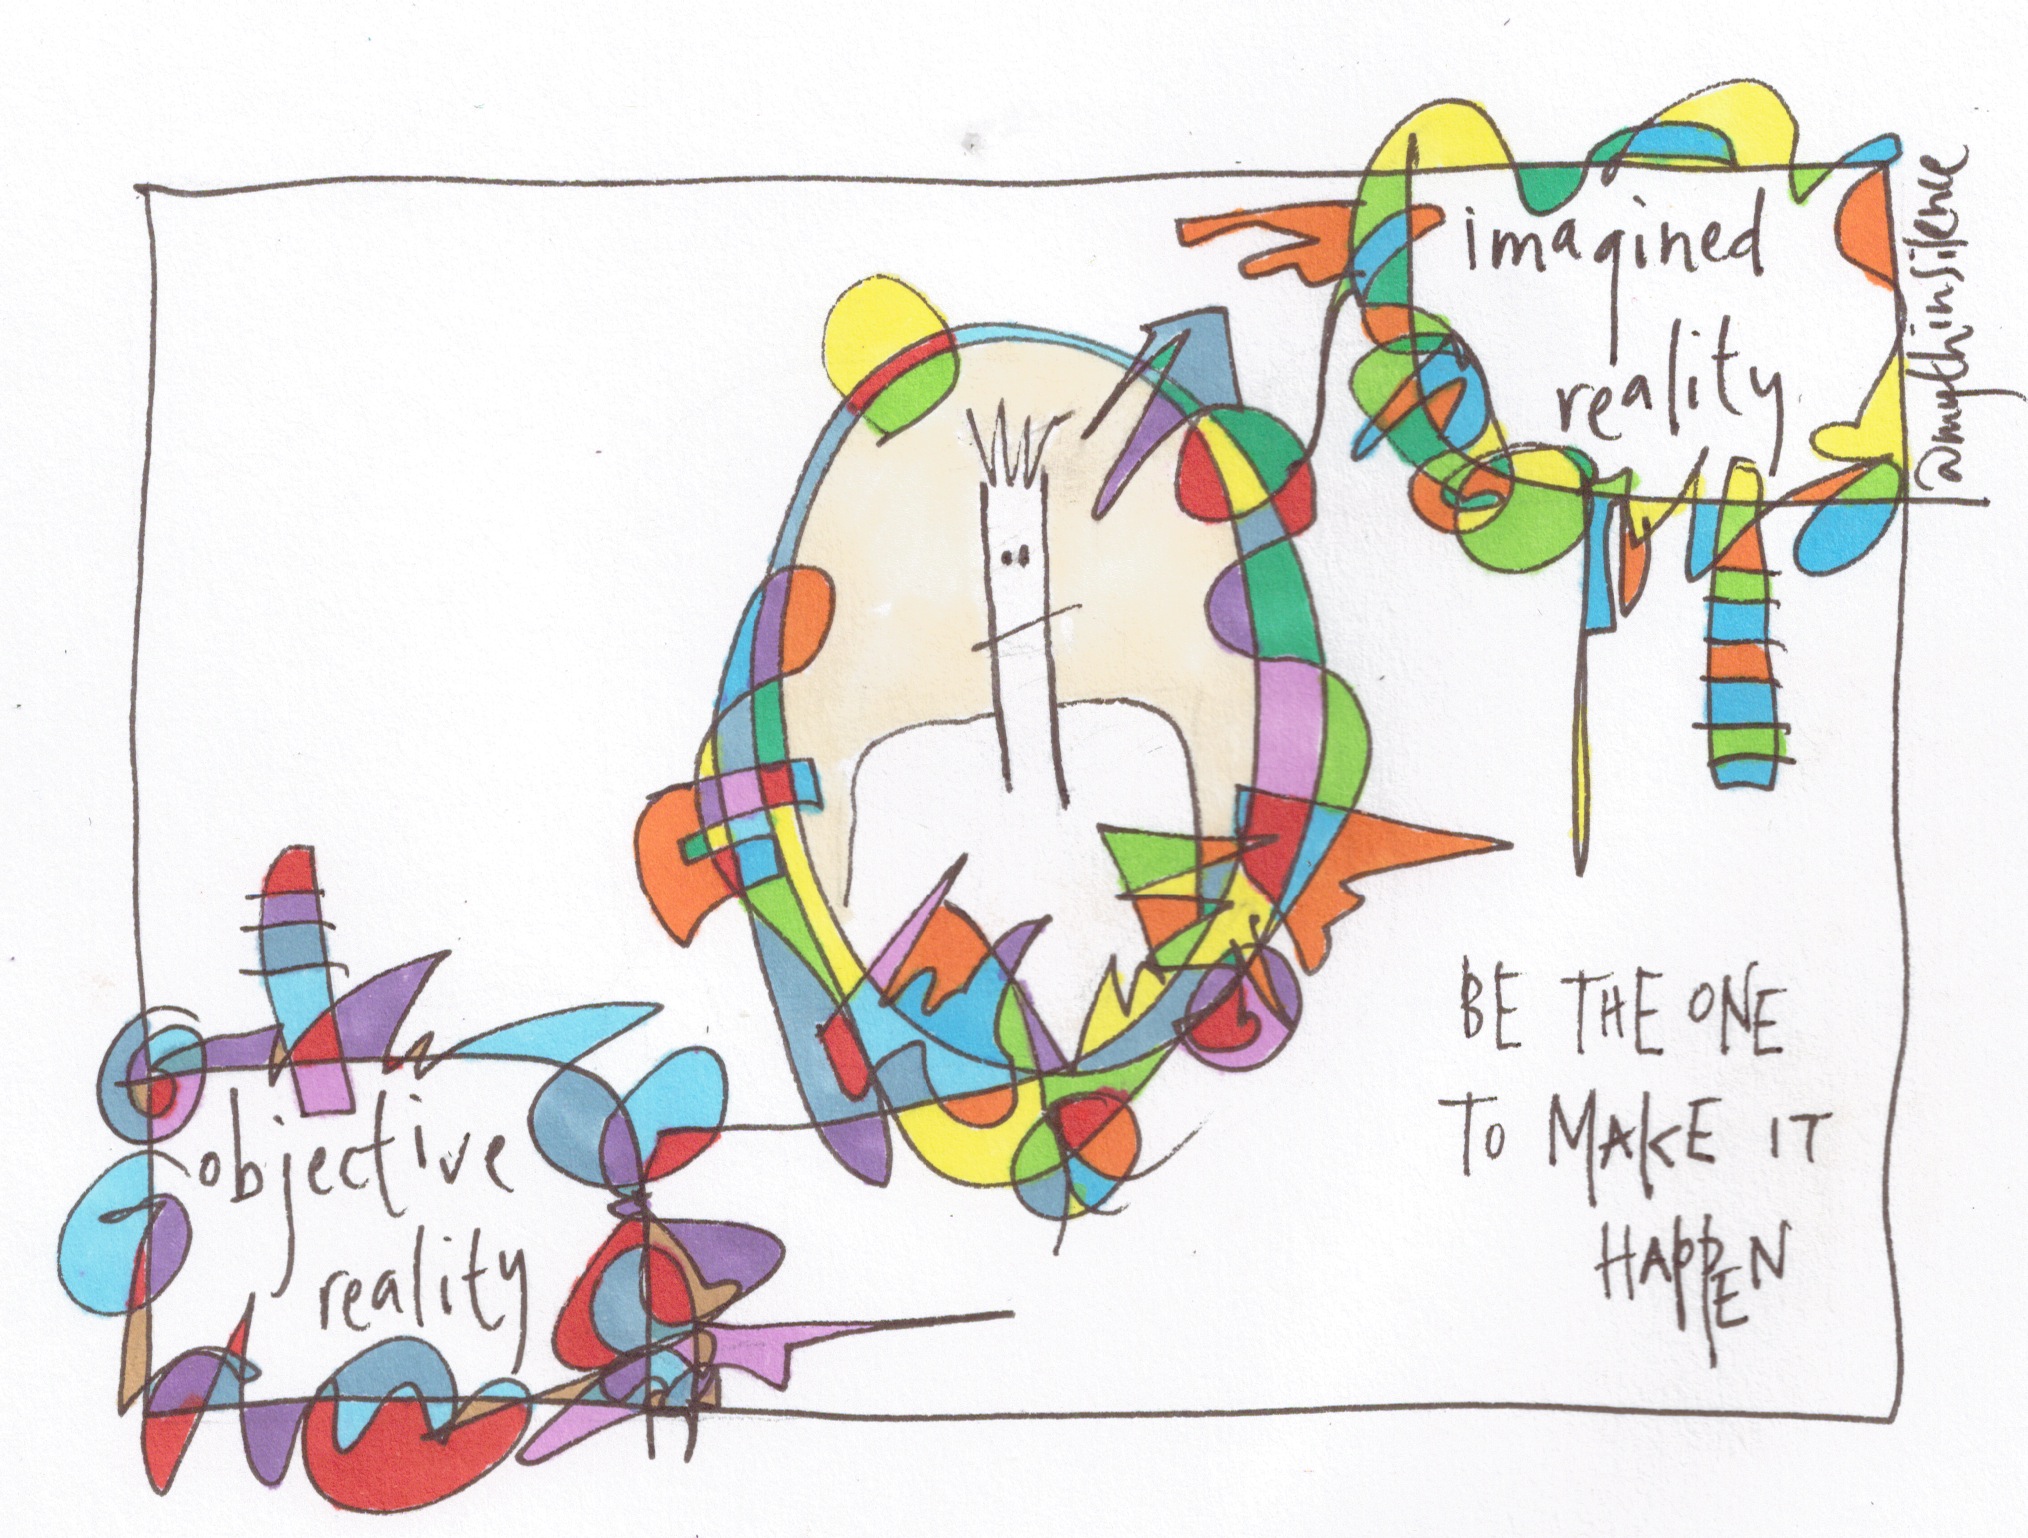 imagined
reality
@mythinsilence
objective
reality
BE THE ONE
TO MAKE IT
HAPPEN